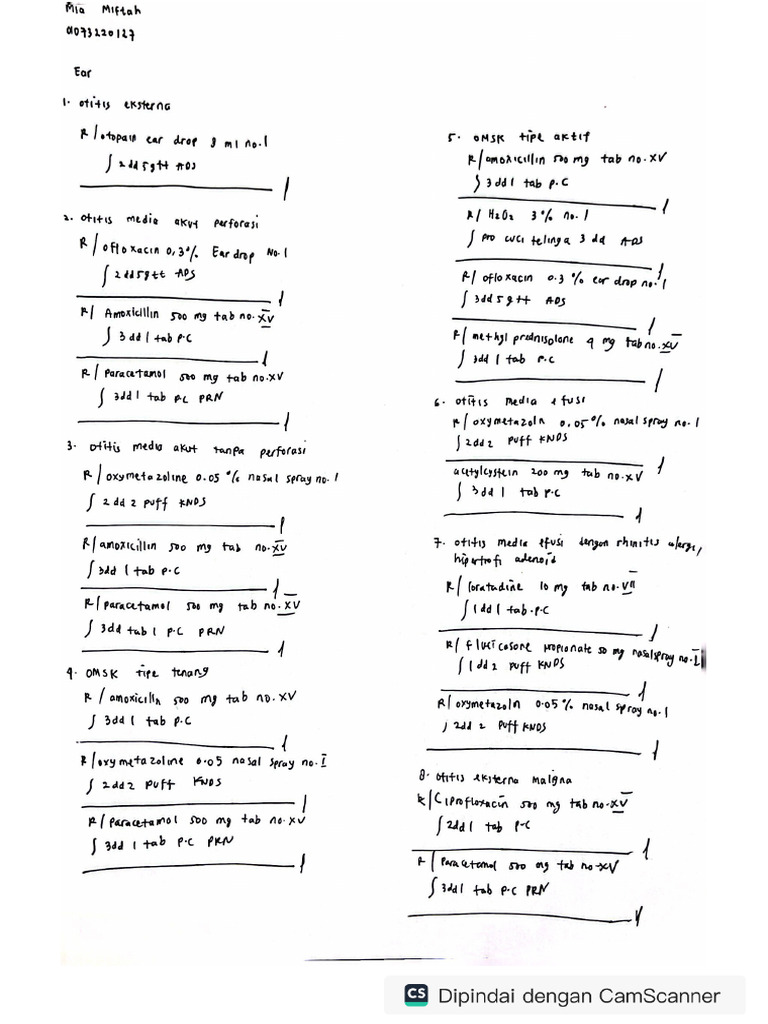 Mia Miftah
01073220127
Ear
1. otitis eksterna
R/ otopain ear drop 8 ml no.1
∫ 2 dd 5 gtt ADS
2. otitis media akut perforasi
R/ ofloxacin 0,3% Ear drop No.1
∫ 2 dd 5 gtt ADS
R/ Amoxicillin 500 mg tab no. XV
∫ 3 dd 1 tab p.c
R/ Paracetamol 500 mg tab no. XV
∫ 3dd 1 tab p.c PRN
3. otitis media akut tanpa perforasi
R/ oxymetazoline 0.05 % nasal spray no.1
∫ 2 dd 2 puff KNDS
R/ amoxicillin 500 mg tab no. XV
∫ 3dd 1 tab p.c
R/ paracetamol 500 mg tab no. XV
∫ 3dd tab 1 p.c PRN
4. OMSK tipe tenang
R/ amoxicilln 500 mg tab no. XV
∫ 3dd 1 tab p.c
R/ oxymetazoline 0.05 nasal spray no. I
∫ 2dd2 puff KNDS
R/ paracetamol 500 mg tab no. XV
∫ 3dd 1 tab p.c PRN
5. OMSK tipe aktif
R/ amoxicillin 500 mg tab no. XV
∫ 3 dd 1 tab p.c
R/ H2O2 3% no. 1
∫ pro cuci telinga 3 dd ADS
R/ ofloxacin 0.3 % ear drop no. 1
∫ 3dd 5 gtt ADS
R/ methyl prednisolone 4 mg tab no. XV
∫ 3dd 1 tab p.c
6. otitis media efusi
R/ oxymetazoln 0.05% nasal spray no. 1
∫ 2dd2 puff KNDS
acetylcystein 200 mg tab no. XV
∫ 3 dd 1 tab p.c
7. otitis media efusi dengan rhinitis alergi,
hipertrofi adenoid
R/ loratadine 10 mg tab no. VII
∫ 1 dd 1 tab. p.c
R/ fluticosone propionate 50 mg nasal spray no. I
∫ 1 dd 2 puff KNDS
R/ oxymetazoln 0.05% nasal spray no. 1
∫ 2dd 2 puff KNDS
8. otitis eksterna maligna
R/ Ciprofloxacin 500 mg tab no. XV
∫ 2dd 1 tab p.c
R/ Paracetamol 500 mg tab no XV
∫ 3dd 1 tab p.c PRN
CS Dipindai dengan CamScanner